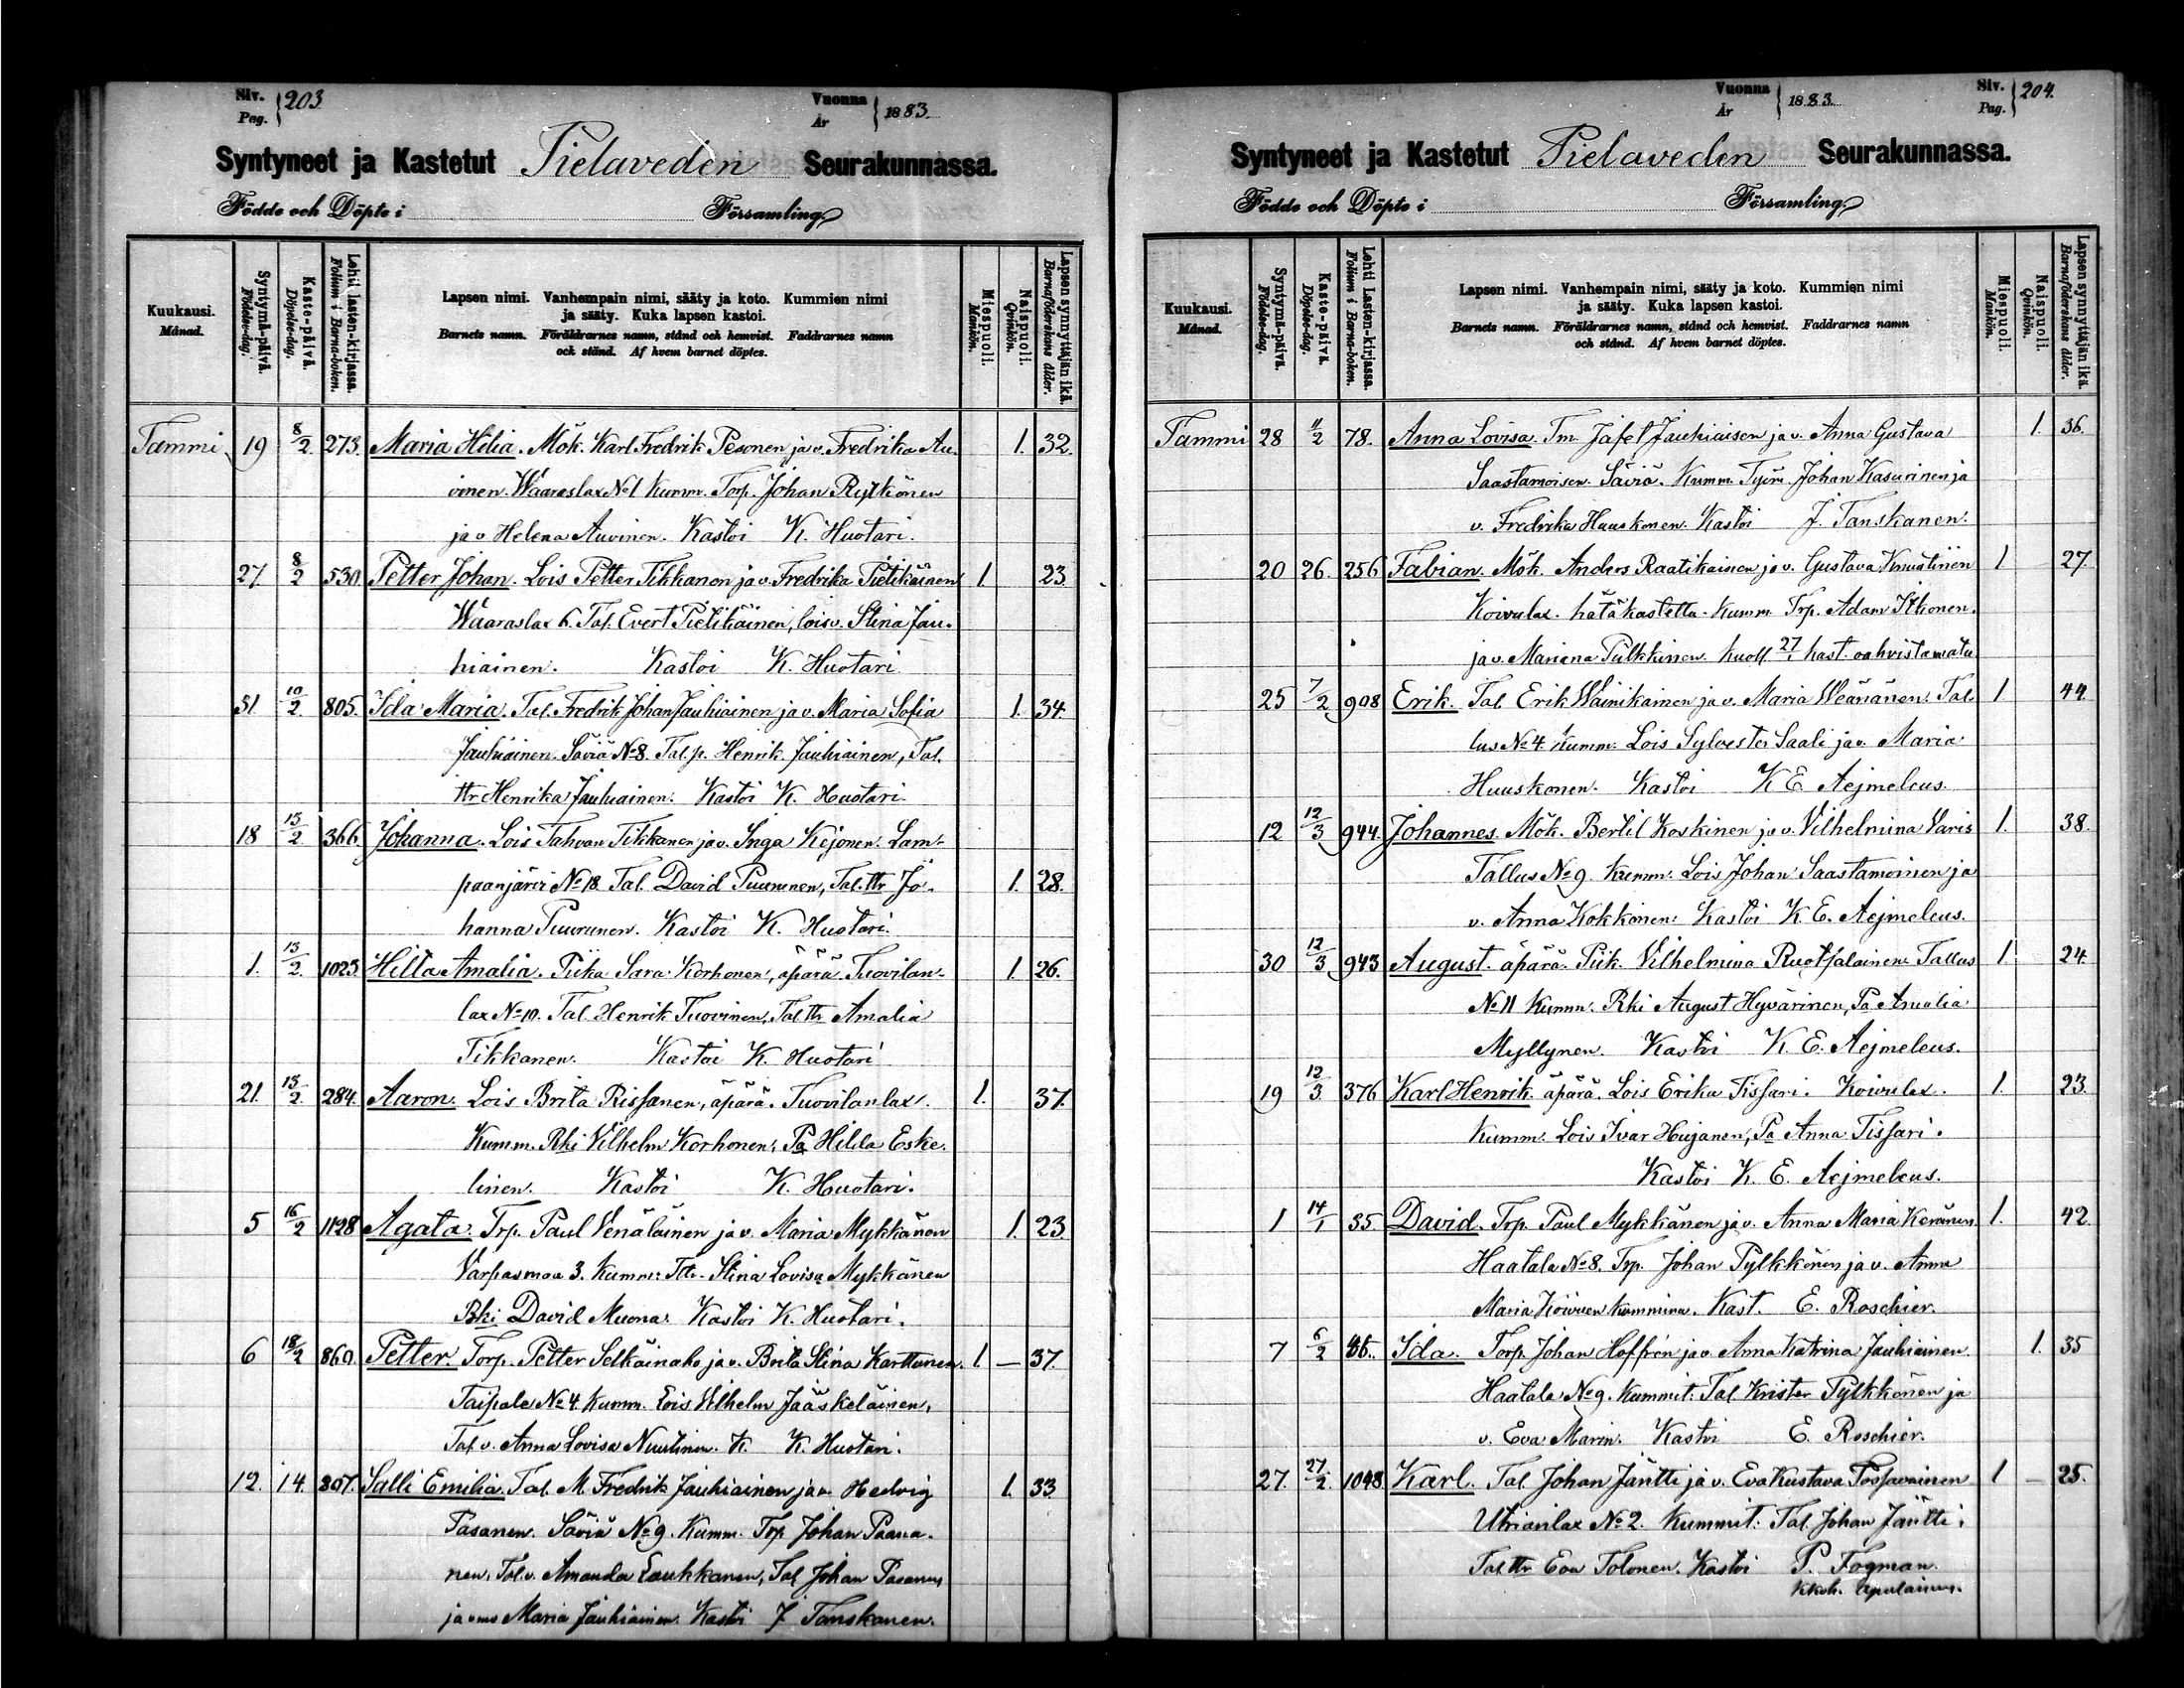 Siv. Pag. 203.
Vuonna År 1883.
Syntyneet ja Kastetut Pielaveden Seurakunnassa.
Födde och Döpte i Församling.
Kuukausi. Månad.
Syntymä-päivä. Födelse-dag.
Kaste-päivä. Döpelse-dag.
Lehti lasten-kirjassa. Folium i Barna-boken.
Lapsen nimi. Vanhempain nimi, sääty ja koto. Kummien nimi
ja sääty. Kuka lapsen kastoi.
Barnets namn. Föräldrarnes namn, stånd och hemvist. Faddrarnes namn
och stånd. Af hvem barnet döptes.
Miespuoli. Mankön.
Naispuoli. Qvinkön.
Lapsen synnyttäjän ikä. Barnaföderskans ålder.
Tammi 19 8/2 273. Maria Hilia. Mök. Karl Fredrik Pesonen ja v. Fredrika Au- 1. 32.
vinen. Waaraslax No 1 Kumm. Torp. Johan Rytkönen
ja v Helena Auvinen. Kastoi K. Huotari.
27 8/2 530. Petter Johan. Lois Petter Tikkanen ja v. Fredrika Pietikäinen 1. 23
Waaraslax 6. Tal. Evert Pietikäinen, lois v. Stina Jau-
hiainen. Kastoi K. Huotari
31 10/2 805. Ida Maria. Tal. Fredrik Johan Jauhiainen ja v. Maria Sofia 1. 34.
Jauhiainen. Säviä No 8. Tal. p. Henrik Jauhiainen, Tal.
ttr Henrika Jauhiainen. Kastoi K. Huotari.
18 13/2 366. Johanna. Lois Tahvan Tikkanen ja v. Inga Kejonen. Lam-
paanjärvi No 18. Tal. David Puurunen, Tal. ttr Jo- 1. 28.
hanna Puurunen. Kastoi K. Huotari.
1. 13/2 1023. Hilla Amalia. Piika Sara Korhonen, äpärä. Tuovilan- 1. 26.
lax No 10. Tal. Henrik Tuovinen, Tal. ttr Amalia
Tikkanen. Kastoi K. Huotari
21. 13/2 284. Aaron. Lois Brita Rissanen, äpärä. Tuovilanlax. 1. 37.
Kumm. Rki Vilhelm Korhonen, Pa Hilda Eske-
linen. Kastoi K. Huotari.
5 16/2 1128 Agata. Trp. Paul Venäläinen ja v. Maria Mykkänen 1. 23
Varpasmaa 3. Kumm: Ttr. Stina Lovisa Mykkänen
Rki David Muona. Kastoi K. Huotari.
6 18/2 860. Petter Torp. Petter Selkäinaho ja v. Brita Stina Karttunen. 1. — 37.
Taipale No 4. Kumm. Lois Vilhelm Jääskeläinen,
Tal v. Anna Lovisa Nuutinen. K. K. Huotari.
12. 14. 807. Salli Emilia. Tal. M. Fredrik Jauhiainen ja v. Hedvig 1. 33
Pasanen. Säviä No 9. Kumm. Trp. Johan Paana-
nen, Tal. v. Amanda Laukkanen, Tal Johan Pasanen
ja vmo Maria Jauhiainen. Kastoi J Tanskanen.
Vuonna År 1883.
Siv. Pag. 204.
Syntyneet ja Kastetut Pielaveden Seurakunnassa.
Födde och Döpte i Församling.
Kuukausi. Månad.
Syntymä-päivä. Födelse-dag.
Kaste-päivä. Döpelse-dag.
Lehti Lasten-kirjassa. Folium i Barna-boken.
Lapsen nimi. Vanhempain nimi, sääty ja koto. Kummien nimi
ja sääty. Kuka lapsen kastoi.
Barnets namn. Föräldrarnes namn, stånd och hemvist. Faddrarnes namn
och stånd. Af hvem barnet döptes.
Miespuoli. Mankön.
Naispuoli. Qvinkön.
Lapsen synnyttäjän ikä. Barnaföderskans ålder.
Tammi 28 11/2 78. Anna Lovisa. Tm. Jafet Jauhiaisen ja v. Anna Gustava 1. 36.
Saastamoisen. Säviä. Kumm. Johan Kasurinen ja
v. Fredrika Huuskonen. Kastoi J. Tanskanen.
20 26. 256 Fabian. Mök. Anders Raatikainen ja v. Gustava Knuutinen 1 27.
Koivulax. hätäkastettu. Kumm. Trp. Adam Itkonen.
ja v. Mariana Pulkkinen. kuoll 27/1 kast. vahvistamatu
25 7/2 908 Erik. Tal. Erik Wäinikainen ja v. Maria Väänänen. Tal- 1. 44.
lus No 4. Kumm. Lois Sylvester Saali ja v. Maria
Huuskonen. Kastoi K E. Aejmeleus.
12 12/3 944. Johannes. Mök. Bertil Koskinen ja v. Vilhelmina Varis 1. 38.
Tallus No 9. Kumm. Lois Johan Saastamoinen ja
v. Anna Kokkonen. Kastoi K. E. Aejmeleus.
30 12/3 943 August. äpärä. Piik. Vilhelmina Ruotsalainen Tallus 1. 24.
No 11 Kumm. Rki August Hyvärinen, Pa Amalia
Myllynen. Kastoi K. E. Aejmeleus.
19 12/3 376 Karl Henrik. äpärä. Lois Erika Tissari. Koivulax. 1. 23.
Kumm. Lois Ivar Hujanen, Pa Anna Tissari.
Kastoi K. E. Aejmeleus.
1 14/1 35. David. Trp. Paul Mykkänen ja v. Anna Maria Keränen. 1. 42
Haatala No 8. Trp. Johan Pylkkönen ja v. Anna
Maria kummina. Kast. E. Roschier.
7 6/2 Ida. Torp. Johan Hoffrén ja v Anna Katrina Jauhiainen. 1. 35
Haatala No 9. Kummit: Tal. Krister Pylkkönen ja
v. Eva Marin. Kastoi E. Roschier.
27. 27/2 1048 Karl. Tal. Johan Jäntti ja v. Eva Kustava Tossavainen 1 — 25.
Utrianlax No 2. Kummit: Tal. Johan Jäntti,
Tal. ttr Eva Tolonen. Kastoi P. Fogman.
kkoh. apulainen.